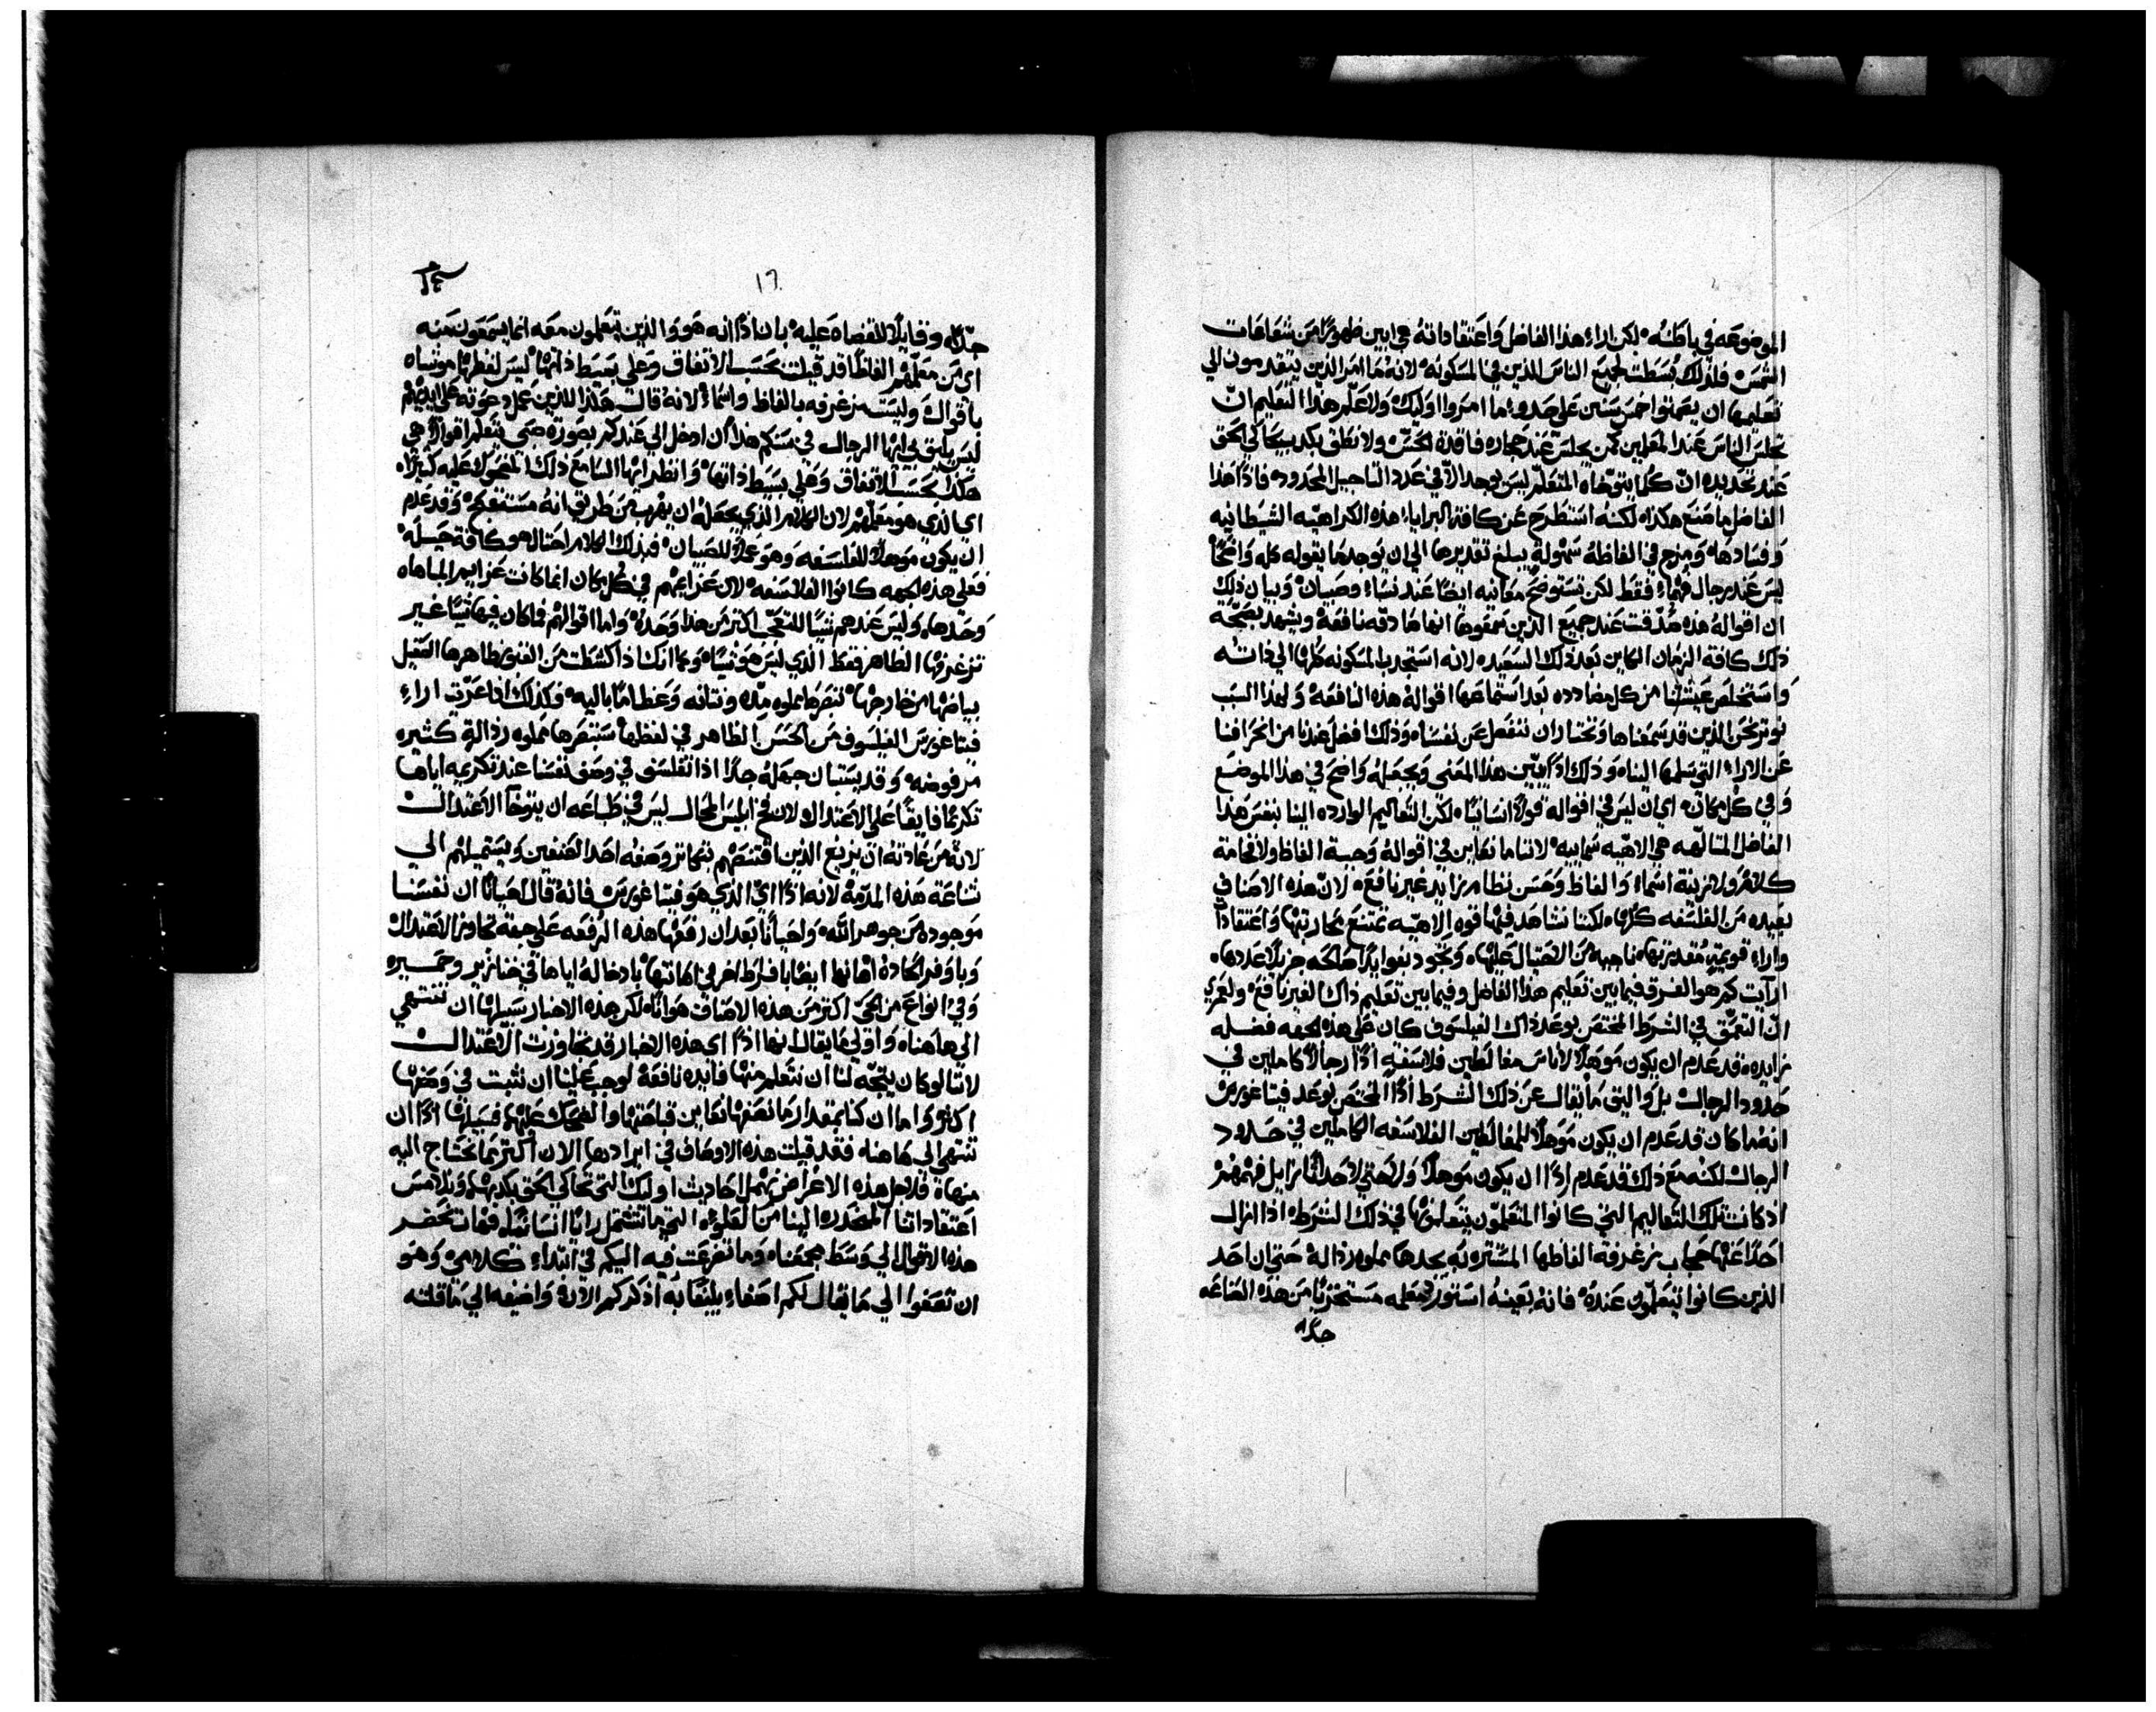 الموضوعه في باطنه لكن اراء هذا الفاضل واعتقاداته هي ابين ظهورًا من شعاعات
الشمس فلذلك بسطت لجميع الناس الذين في المسكونه لانه ما امر الذين يتقدمون الي
تعليمها ان يصمتوا خمس سنين علي حدو ما امروا اوليك ولا علّم هذا التعليم ان
يجلس الناس عند المعلمين كمن يجلس عند حجاره فاقدة الحس ولا نطق بكذب يحاكي الحق
عند تحديده ان كلما يتوخاه المتعلم ليس يوجد الا في عدد الاناجيل المحدوده فاذًا هذا
الفاضل ما صنع هكذا لكنه استطرح عن كافة البرايا هذه الكراهيه الشيطانيه
وفسادها ومزج في الفاظه سهولة يبلغ تقديرها الي ان يوجد ما يقوله كله واضحًا
ليس عند رجال فهماء فقط لكن تستوضح معانيه ايضًا عند نساء وصبيان وبيان ذلك
ان اقواله هذه صُدّقت عند جميع الذين سمعوها انها صادقه نافعة ويشهد بصحة
ذلك كافة الزمان الكاين بعد ذلك السعيده لانه استجدب المسكونه كلها الي ذاته
واستخلص عيشتنا من كل مضادده بعد استماعها اقواله هذه النافعة ولهذا السبب
نوثر نحن الذين قد سمعناها ونختار ان ننفصل عن نفسنا وذلك افضل عندنا من انحرافنا
عن الاراء التي سلمها الينا وذلك اذًا يبين هذا المعني ويجعله واضح في هذا الموضع
وفي كل مكان اي ان ليس في اقواله قولًا انسانيًا لكن التعاليم الوارده الينا بنفس هذا
الفاضل المتالهه هي الاهيه سماييه لاننا ما نعاين في اقواله وجبة الفاظ ولا فخامة
كلام ولا زينة اسماء والفاظ وحسن نظام زايد غير نافع لان هذه الاصناف
بعيده من الفلسفه كلها لكننا نشاهد فيها قوه الاهيه تمتنع محاربتها واعتقاداً
واراء قويمة مقتدر بها ناجيه من الاحتيال عليها وتجود بفوايدًا صالحه جزيلًا عددها
ارآيت كم هو الفرق فيما بين تعليم هذا الفاضل وفيما بين تعليم ذاك الغير نافع ولعمري
انّ التعمّق في الشرط المختص بوعد ذاك الفيلسوف كان علي هذه الجهه فضله
زايده قد عدم ان يكون موهلًا لاناس مغالطين فلاسفة اذًا رجالًا كاملين في
حدود الرجال بل واليق ما يقال عن ذلك الشرط اذًا المختص بوعد فيثاغورس
انه ما كان قد عدم ان يكون موهلًا للمغالطين الفلاسفه الكاملين في حدود
الرجال لكنه مع ذلك قد عدم اذًا ان يكون موهلًا ولا حتي لاحداثًا زايل فهمهم
اذ كانت تلك التعاليم التي كانوا المتعلمون يتعلمونها في ذلك الشرط اذا ازال
احدًا عنها حجاب زغرفة الفاظها المستتره به يجدها مملوه رذالة حتي ان احد
الذين كانوا يتعلمون عنده فانه بعينه استورّ معلمه مستخزيًا من هذه الصناعه
جدًا
١٦
جدًا وقايلًا للقضاه عليه بان اذًا انه هو والذين يتعلمون معه انما يسمعون منه
اي من معلمهم الفاظًا قد قيلت بحسب الاتفاق وعلي بسيط ذاتها ليس لفظها موشاه
باقوال وليست مزغرفه بالفاظ واسماء لانه قال هكذا للذين عمل دعوته علي ايديهم
ليس يليق بي ايها الرجال في سنكم هذا ان ادخل الي عندكم بصورة صبي يتعلم اقوالًا هي
هكذا بحسب الاتفاق وعلي بسيط ذاتها وانظر ايها السامع ذلك المضحوك عليه كثيرًا
اي الذي هو معلمهم لان الكلام الذي يجعله ان يهرب من طريق انه مستفضح وقد عدم
ان يكون موهلًا للفلسفه وهو عملًا للصبيان فبذلك الكلام احتال هو كافة حيله
فعلي هذه الجهه كانوا الفلاسفه لان عزايمهم في كل مكان انما كانت عزايم المباهاه
وحدها وليس عندهم شيًا للتعجب اكثر من هذا وحده واما اقوالهم فما كان فيها شيًا غير
تزغرفها الظاهر فقط الذي ليس هو شيًا وكما انك اذا كشطت من القبور ظاهرها الثقيل
بياضها من خارجها تبصرها مملوه مدّه ونتانه وعظامًا باليه فكذلك اذا عرّيت اراء
فيثاغورس الفيلسوف من الحسن الظاهر في لفظها ستبصرها مملوه رذالة كثيره
مرفوضه وقد يستبان جهله جدًا اذا تفلسف في وصف نفسنا عند تكريمه اياها
تكريمًا فايقًا علي الاعتدال ولان فخ ابليس المحال ليس في طباعه ان يتوخا الاعتدال
لانه من عادته ان يزيغ الذين اقتنصهم بتجاوز وصفه احد الصنفين ويستميلهم الي
شناعة هذه المذمة لانه اذًا اي الذي هو فيثاغورس فانه قال احيانًا ان نفسنا
موجوده من جوهر الله واحيانًا بعد ان رفعها هذه الرفعه علي جهة تجاوز الاعتدال
وباوفر الحادة اهانها ايضًا بافراط اخر في اهانتها بادخاله اياها في خنازير وحمير
وفي انواع من الحي اكثر من هذه الاصناف هوانًا لكن هذه الاخبار سبيلها ان تنتهي
الي هاهنا واولي ما يقال انها اذًا اي هذه الاخبار قد تجاوزت الاعتدال
لاننا لو كان يتجه لنا ان نتعلم منها فايده نافعة لوجب علينا ان نثبت في وصفها
اكثر واما ان كنا بمقدار ما نصفها نعاين قباحتها والضحك عليها فسبيلها اذًا ان
تنتهي الي هاهنا فقد قيلت هذه الاوصاف في ايرادها الان اكثر مما نحتاج اليه
منها فلاجل هذه الاغراض نهمل احاديث اوليك التي تحاكي الحق بكذبها ونلامس
اعتقاداتنا المنحدره الينا من العلوّ التي ما تشتمل رايًا انسانيًا فهات نحضر
هذه الاقوال الي وسط مجمعنا وما تضرعت فيه اليكم في ابتداء كلامي وهو
ان تصغوا الي ما يقال لكم اصغاء يليق به اذكركم الان واضيفه الي ما قلته